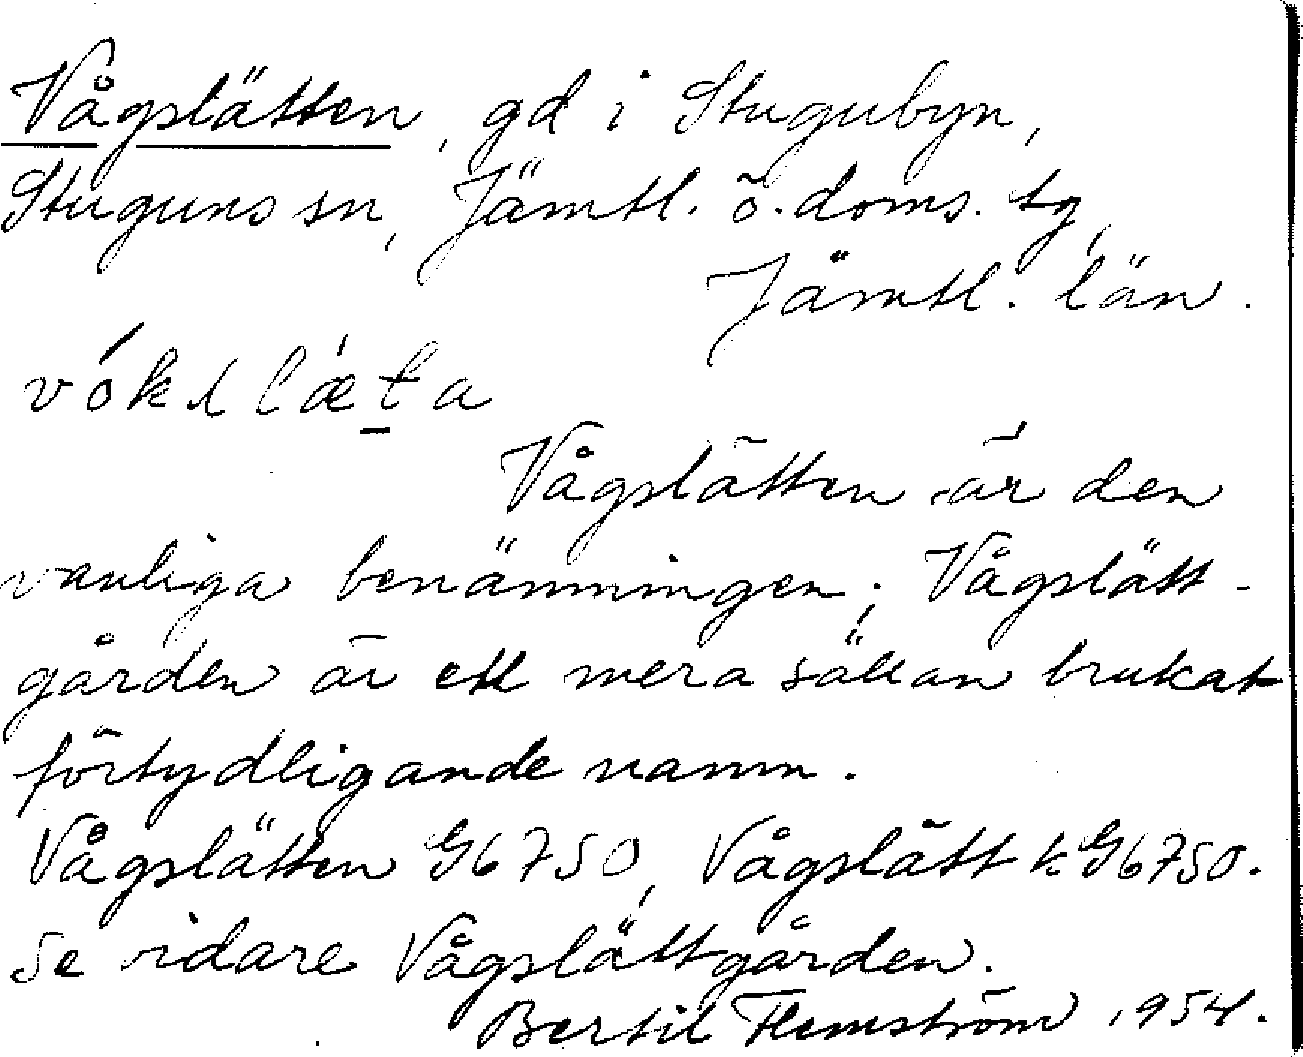 Vågslätten, gd i Stugubyn,
Stuguns sn, Jämtl. ö. doms. tg,
Jämtl. län.
vókslǽta
Vågslätten är den
vanliga benämningen; Vågslätt-
gården är ett mera sällan brukat
förtydligande namn.
Vågslätten G6750, Vågslätt k G6750.
Se vidare Vågslättgården.
Bertil Flemström 1954.